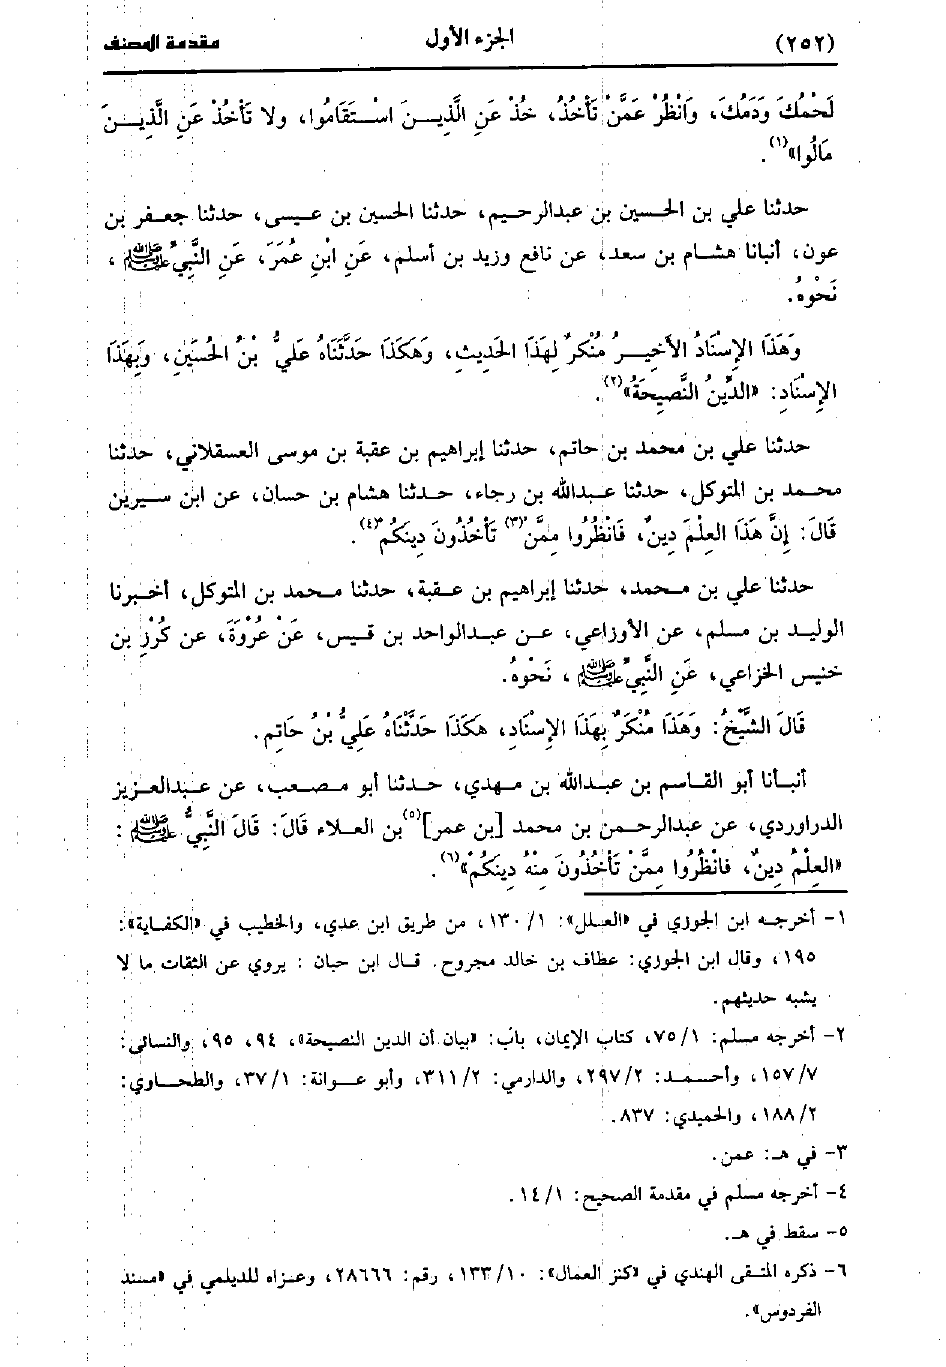 (٢٥٢) الجزء الأول مقدمة المصنف
لَحْمُكَ وَدَمُكَ، وَانْظُرْ عَمَّنْ تَأْخُذُ، خُذْ عَنِ الَّذِينَ اسْتَقَامُوا، ولا تَأْخُذْ عَنِ الَّذِينَ
مَالُوا»(١).
حدثنا علي بن الحسين بن عبدالرحيم، حدثنا الحسين بن عيسى، حدثنا جعفر بن
عون، أنبانا هشام بن سعد، عن نافع وزيد بن أسلم، عَنِ ابْنِ عُمَرَ، عَنِ النَّبِيِّ ﷺ،
نَحْوهُ.
وَهَذَا الإِسْنَادُ الأخِيرُ مُنْكرٌ لِهَذَا الحَدِيثِ، وَهَكَذَا حَدَّثَنَاهُ عَلَيُّ بْنُ الحُسَيَنِ، وَبِهَذَا
الإِسْنَادِ: «الدِّينُ النَّصِيحَةُ»(٢).
حدثنا علي بن محمد بن حاتم، حدثنا إبراهيم بن عقبة بن موسى العسقلاني، حدثنا
محمد بن المتوكل، حدثنا عبدالله بن رجاء، حدثنا هشام بن حسان، عن ابن سيرين
قَالَ: إِنَّ هَذَا العِلْمَ دِينٌ، فَانْظُرُوا مِمَّنْ(٣) تَأْخُذُونَ دِينَكُمْ(٤).
حدثنا علي بن محمد، حدثنا إبراهيم بن عقبة، حدثنا محمد بن المتوكل، أخبرنا
الوليد بن مسلم، عن الأوزاعي، عن عبدالواحد بن قيس، عَنْ عُرْوَةَ، عن كُرْزِ بن
خنيس الخزاعي، عَنِ النَّبِيِّ ﷺ، نَحْوَهُ.
قَالَ الشَّيْخُ: وَهَذَا مُنْكَرٌ بِهَذَا الإِسْنَادِ، هكَذَا حَدَّثَنَاهُ عَلِيُّ بْنُ حَاتِم.
أنبأنا أبو القاسم بن عبدالله بن مهدي، حدثنا أبو مصعب، عن عبدالعزيز
الدراوردي، عن عبدالرحمن بن محمد [بن عمر](٥) بن العلاء قَالَ: قَالَ النَّبِيُّ ﷺ:
«العِلْمُ دِينٌ، فانْظُرُوا مِمَّنْ تَأْخُذُونَ مِنْهُ دِينَكُمْ»(٦).
١- أخرجه ابن الجوزي في «العلل»: ١/ ١٣٠، من طريق ابن عدي، والخطيب في «الكفاية»:
١٩٥، وقال ابن الجوزي: عطاف بن خالد مجروح. قال ابن حبان: يروي عن الثقات ما لا
يشبه حديثهم.
٢- أخرجه مسلم: ١/ ٧٥، كتاب الإيمان، باب: «بيان أن الدين النصيحة»، ٩٤، ٩٥، والنسائي:
٧/ ١٥٧، وأحمد: ٢/ ٢٩٧، والدارمي: ٢/ ٣١١، وأبو عوانة: ١/ ٣٧، والطحاوي:
٢/ ١٨٨، والحميدي: ٨٣٧.
٣- في هـ: عمن.
٤- أخرجه مسلم في مقدمة الصحيح: ١/ ١٤.
٥- سقط في هـ.
٦- ذكره المتقى الهندي في «كنز العمال»: ١٠/ ١٣٣، رقم: ٢٨٦٦٦، وعزاه للديلمي في «مسند
الفردوس».